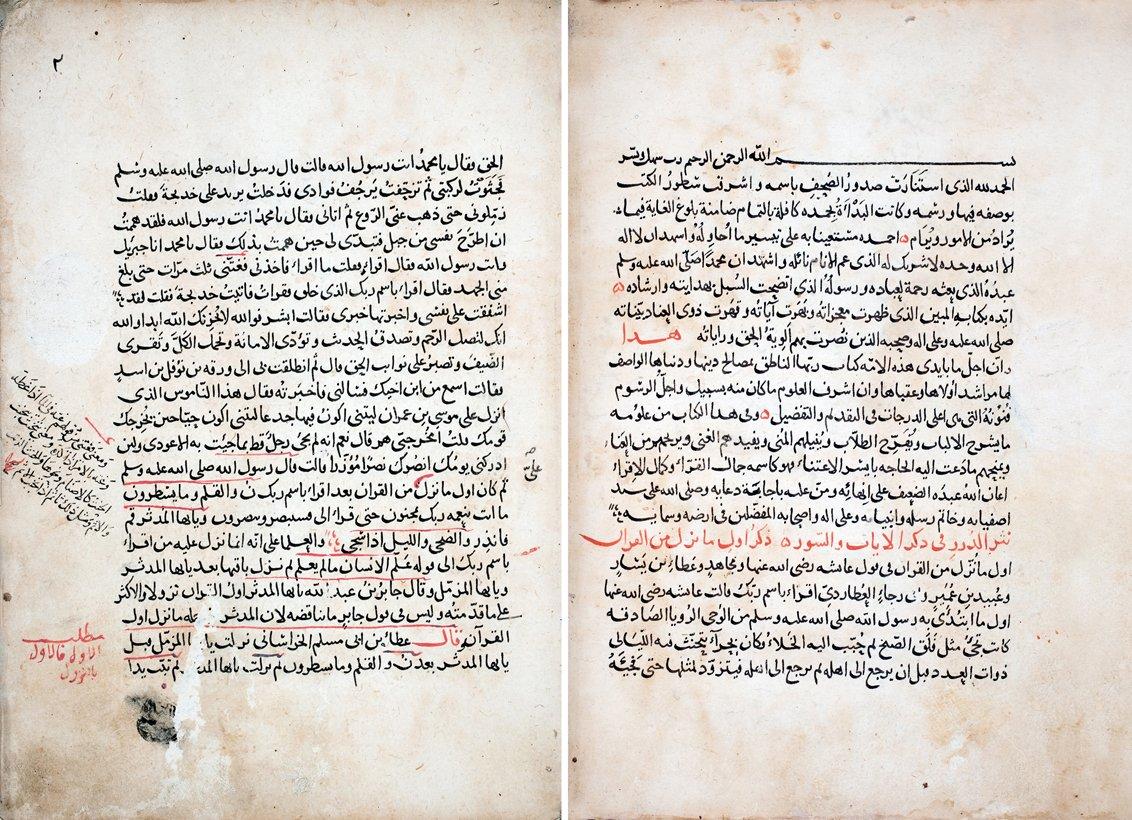 بسم الله الرحمن الرحيم رب سهل ويسر
الحمد لله الذى استنارت صدور الصحف باسمه واشرقت سطور الكتب
بوصفه فيها ورسمه وكانت البدأة بحمده كافلة بالتمام ضامنة بلوغ الغاية فيما
يراد من الامور ويرام احمده مستعينا به على تيسير ما احاوله واشهد ان لا اله
الا الله وحده لا شريك له الذى عم الانام نائله واشهد ان محمدا صلى الله عليه وسلم
عبده الذى بعثه رحمة لعباده ورسوله الذى اتضحت السبل بهدايته وارشاده
ايده بكتابه المبين الذى ظهرت معجزاته وبهرت آياته وقهرت ذوى العناد بيناته
صلى الله عليه وعلى اله وصحبه الذين نصرت بهم ألوية الحق وراياته هذا
وان اجل ما بايدى هذه الامة كتاب ربها الناطق بمصالح دينها ودنياها الواصف
لها مراشد اولاها وعقباها وان اشرف العلوم ما كان منه بسبيل واجل الرسوم
فى التقديم والتفضيل وفى هذا الكتاب من علومه
ما يشرح الالباب ويفرح الطلاب وينيلهم المنى ويفيدهم الغنى ويريحهم من العنا
ويمنحهم ما دعت اليه الحاجة بايسر الاعتناء فهو كاسمه جمال القراء وكمال الاقراء
اعان الله عبده الضعيف على انهائه ومن عليه باجابة دعايه وصلى الله على سيد
اصفيايه وخاتم رسله وانبيايه وعلى اله واصحابه المفضلين فى ارضه وسمايه
نثر الدرر فى ذكر الآيات والسور ذكر اول ما نزل من القران
اول ما نزل من القران فى قول عائشة رضى الله عنها ومجاهد وعطاء بن يسار
وعبيد بن عمير وابى رجاء العطاردى اقراء باسم ربك قالت عائشة رضى الله عنها
اول ما ابتدئ به رسول الله صلى الله عليه وسلم من الوحى الرويا الصادقة
كانت تجئ مثل فلق الصبح ثم حبب اليه الخلاء وكان بحراء يتحنث فيه الليالى
ذوات العدد قبل ان يرجع الى اهله ثم يرجع الى اهله فيتزود لمثلها حتى فجئه
٢
الحق وقال يا محمد انت رسول الله قالت قال رسول الله صلى الله عليه وسلم
فجثوت لركبتى ثم ترجف فوادى فدخلت على خديجة فقلت
زملونى حتى ذهب عنى الروع ثم اتانى فقال يا محمد انت رسول الله فلقد هممت
ان اطرح نفسى من جبل فتبدى لى حين هممت بذلك فقال يا محمد انا جبريل
وانت رسول الله فقال اقراء فقلت ما اقراء فاخذنى فغتنى ثلث مرات حتى بلغ
منى الجهد فقال اقراء باسم ربك الذى خلق فقرات فاتيت خديجة فقلت لقد
اشفقت على نفسى واخبرتها خبرى فقالت ابشر فوالله لا يخزيك الله ابدا والله
انك لتصل الرحم وتصدق الحديث وتؤدى الامانة وتحمل الكل وتقرى
الضيف وتصبر على نوايب الحق قال ثم انطلقت بى الى ورقة بن نوفل بن اسد
فقالت اسمع من ابن اخيك فسالنى فاخبرته فقال هذا الناموس الذى
انزل على موسى بن عمران ليتنى اكون فيها جدعا ليتنى اكون حيا حين يخرجك
قومك قلت أمخرجى هم قال نعم انه لم يجئ رجل قط بما جيت به الا عودى ولين
ادركنى يومك انصرك نصرا مؤزرا قالت قال رسول الله صلى الله عليه وسلم
ثم كان اول ما نزل من القران بعد اقراء باسم ربك ن والقلم وما يسطرون
ما انت بنعمة ربك بمجنون حتى قراء الى فستبصر ويبصرون ويايها المدثر قم
فانذر والضحى والليل اذا سجى والعلماء على انه انما نزل عليه من اقراء
باسم ربك الى قوله علم الانسان ما لم يعلم ثم نزل باقيها بعد يايها المدثر
ويايها المزمل وقال جابر بن عبد الله يايها المدثر اول القران نزولا والاكثر
على ما قدمته وليس فى قول جابر ما يناقضه لان المدثر من جملة ما نزل اول
القرآن وقال عطاء بن ابى مسلم الخراسانى نزلت يايها المزمل قبل
يايها المدثر بعد ن والقلم وما يسطرون ثم نزلت يايها المدثر ثم تبت يدا
مطلب
الاول فالاول
بالنزول
صح